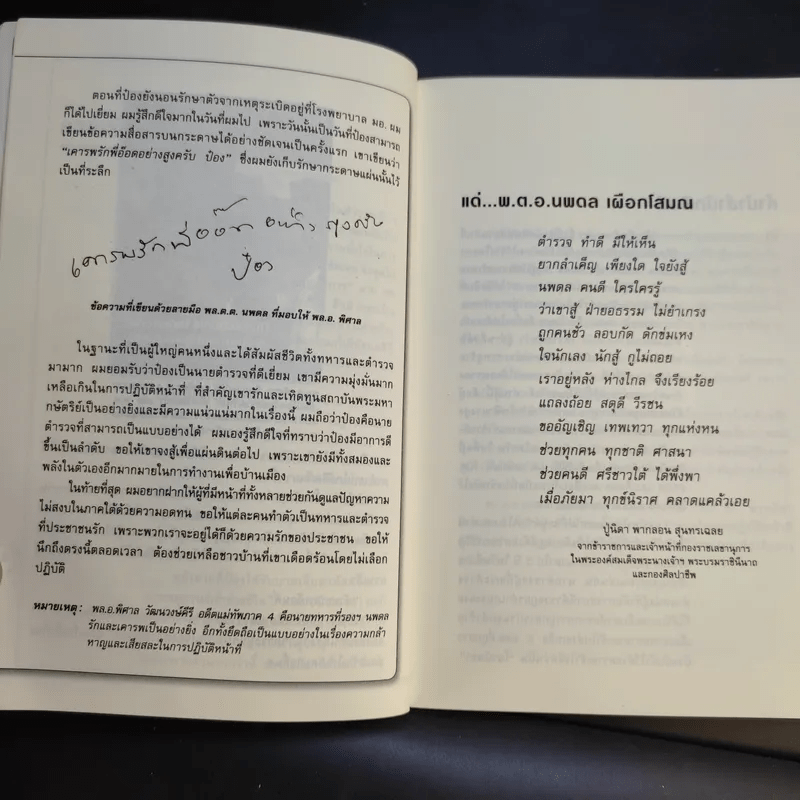 ตอนที่ป๋องยังนอนรักษาตัวจากเหตุระเบิดอยู่ที่โรงพยาบาล มอ. ผม
ก็ได้ไปเยี่ยม ผมรู้สึกดีใจมากในวันที่ผมไป เพราะวันนั้นเป็นวันที่ป๋องสามารถ
เขียนข้อความสื่อสารบนกระดาษได้อย่างชัดเจนเป็นครั้งแรก เขาเขียนว่า
"เคารพรักพี่อ๊อดอย่างสูงครับ ป๋อง" ซึ่งผมยังเก็บรักษากระดาษแผ่นนั้นไว้
เป็นที่ระลึก
เคารพรักพี่อ๊อด อย่างสูงครับ
ป๋อง
ข้อความที่เขียนด้วยลายมือ พล.ต.ต. นพดล ที่มอบให้ พล.อ. พิศาล
ในฐานะที่เป็นผู้ใหญ่คนหนึ่งและได้สัมผัสชีวิตทั้งทหารและตำรวจ
มามาก ผมยอมรับว่าป๋องเป็นนายตำรวจที่ดีเยี่ยม เขามีความมุ่งมั่นมาก
เหลือเกินในการปฏิบัติหน้าที่ ที่สำคัญเขารักและเทิดทูนสถาบันพระมหา
กษัตริย์เป็นอย่างยิ่งและมีความแน่วแน่มากในเรื่องนี้ ผมถือว่าป๋องคือนาย
ตำรวจที่สามารถเป็นแบบอย่างได้ ผมเองรู้สึกดีใจที่ทราบว่าป๋องมีอาการดี
ขึ้นเป็นลำดับ ขอให้เขาจงสู้เพื่อแผ่นดินต่อไป เพราะเขายังมีทั้งสมองและ
พลังในตัวเองอีกมากมายในการทำงานเพื่อบ้านเมือง
ในท้ายที่สุด ผมอยากฝากให้ผู้ที่มีหน้าที่ทั้งหลายช่วยกันดูแลปัญหาความ
ไม่สงบในภาคใต้ด้วยความอดทน ขอให้แต่ละคนทำตัวเป็นทหารและตำรวจ
ที่ประชาชนรัก เพราะพวกเราจะอยู่ได้ก็ด้วยความรักของประชาชน ขอให้
นึกถึงตรงนี้ตลอดเวลา ต้องช่วยเหลือชาวบ้านที่เขาเดือดร้อนโดยไม่เลือก
ปฏิบัติ
หมายเหตุ : พล.อ.พิศาล วัฒนวงษ์คีรี อดีตแม่ทัพภาค 4 คือนายทหารที่รองฯ นพดล
รักและเคารพเป็นอย่างยิ่ง อีกทั้งยึดถือเป็นแบบอย่างในเรื่องความกล้า
หาญและเสียสละในการปฏิบัติหน้าที่
แด่...พ.ต.อ.นพดล เผือกโสมณ
ตำรวจ ทำดี มีให้เห็น
ยากลำเค็ญ เพียงใด ใจยังสู้
นพดล คนดี ใครใครรู้
ว่าเขาสู้ ฝ่ายอธรรม ไม่ยำเกรง
ถูกคนชั่ว ลอบกัด ดักข่มเหง
ใจนักเลง นักสู้ กูไม่ถอย
เราอยู่หลัง ห่างไกล จึงเรียงร้อย
แถลงถ้อย สดุดี วีรชน
ขออัญเชิญ เทพเทวา ทุกแห่งหน
ช่วยทุกคน ทุกชาติ ศาสนา
ช่วยคนดี ศรีชาวใต้ ได้พึ่งพา
เมื่อภัยมา ทุกข์นิราศ คลาดแคล้วเอย
ปู่นิดา พากลอน สุนทรเฉลย
จากข้าราชการและเจ้าหน้าที่กองราชเลขานุการ
ในพระองค์สมเด็จพระนางเจ้าฯ พระบรมราชินีนาถ
และกองศิลปาชีพ